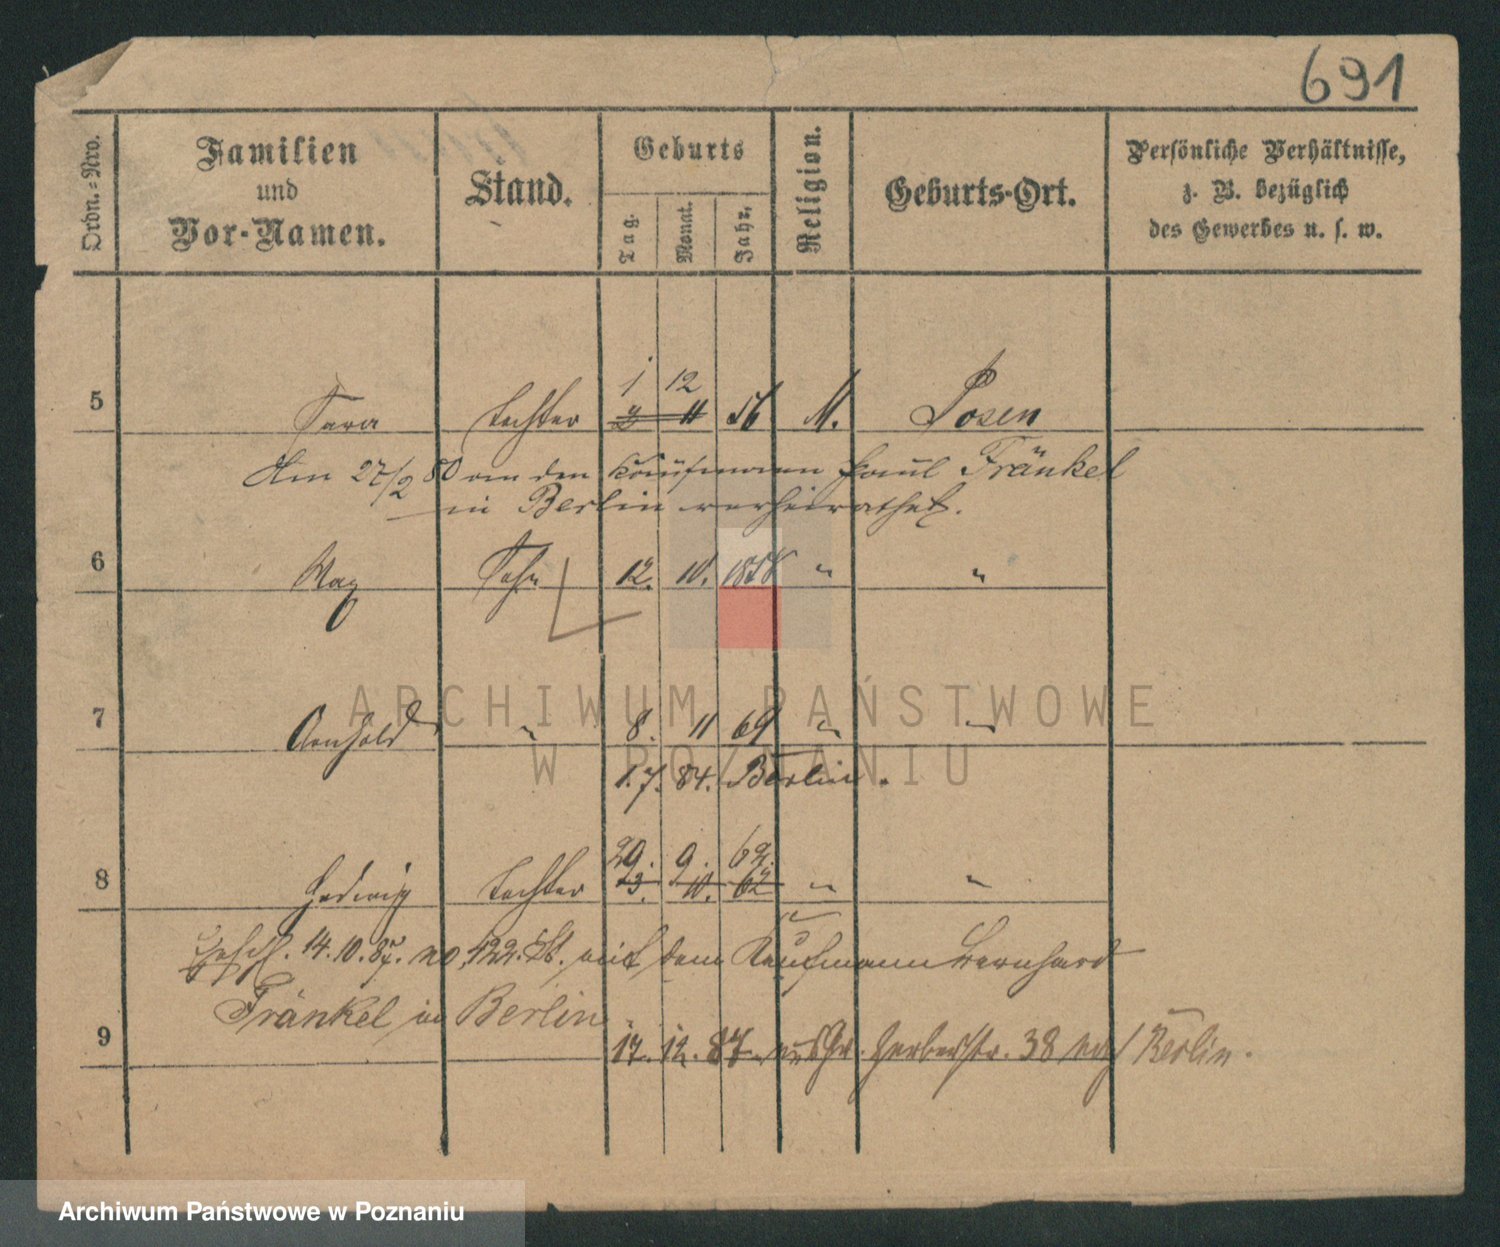 691
Ordn.-Nro.
Familien
und
Vor-Namen.
Stand.
Geburts
Tag.
Monat.
Jahr.
Religion.
Geburts-Ort.
Persönliche Verhältnisse,
z. B. bezüglich
des Gewerbes u. s. w.
1 12
5 Sara Tochter 11 56 M. Posen
Am 27/2 80 an den Kaufmann Paul Fränkel
in Berlin verheirathet.
6 Max Sohn 12. 10. 1858 " "
7 Arnhold " 8. 11 69 " "
1. 7. 84. Berlin.
29. 9. 62.
8 Hedwig Tochter 23. 10. 62 " "
14. 10. 87. No 422. mit dem Kaufmann Bernhard
Fränkel in Berlin
9 17. 12. 87. Gr. Gerberstr. 38 nach Berlin.
ARCHIWUM PAŃSTWOWE
W POZNANIU
Archiwum Państwowe w Poznaniu